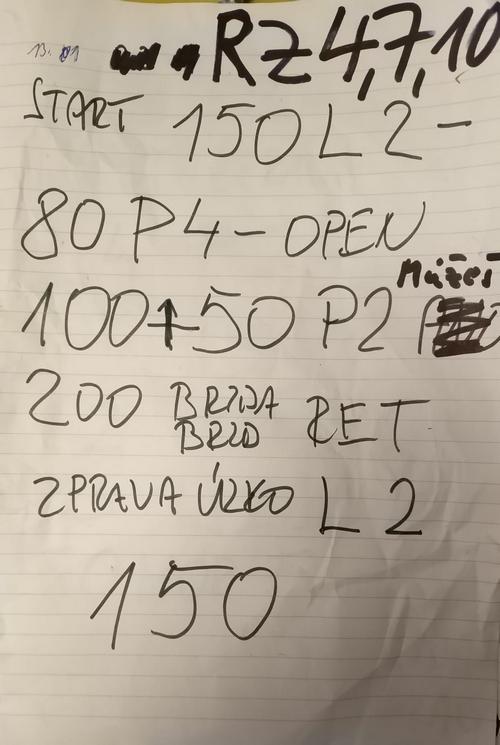 RZ 4,7,10
START 150 L 2 -
80 P4 - OPEN
Můžeš
100 ↑ 50 P2
200 BRZDA RET
BRZD
ZPRAVA ÚZKO L 2
150